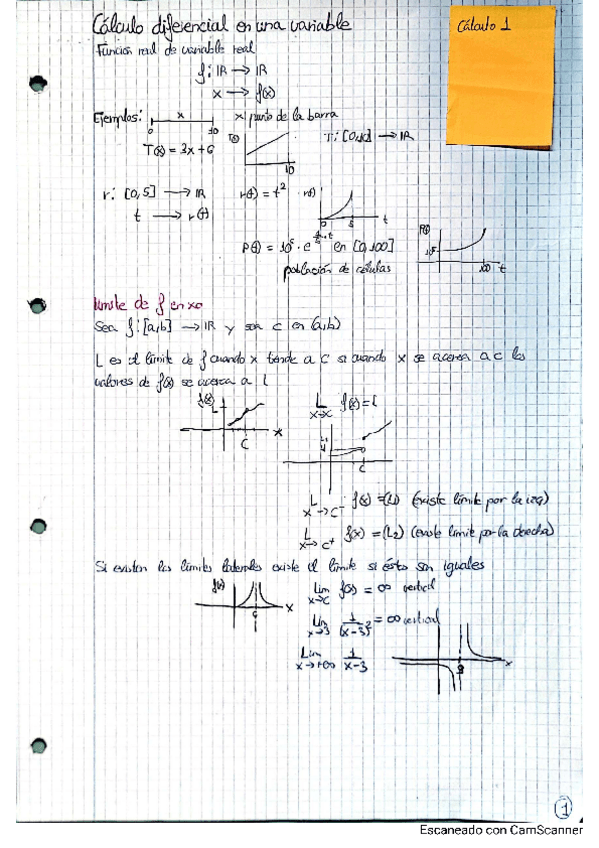 Cálculo diferencial en una variable
Cálculo 1
Función real de variable real
f: IR → IR
x → f(x)
Ejemplos: x
0 10
x: punto de la barra
T(x) = 3x+6
T(x)
10
T: [0,10] → IR
r: [0,5] → IR
t → r(t)
r(t) = t²
r(t)
0 5 t
en [0,100]
población de células
P(t)
100 t
límite de f en x0
Sea f: [a,b] → IR y sea c en (a,b)
L es el límite de f cuando x tiende a c si cuando x se acerca a c los
valores de f(x) se acerca a L
f(x)
L
C
x
L f(x) = L
x→c
C
L f(x) = (L1) (existe límite por la izq)
x→c-
L f(x) = (L2) (existe límite por la derecha)
x→c+
Si existen los límites laterales existe el límite si éstos son iguales
f(x)
c
x
Lim f(x) = ∞ vertical
x→c
Lim 1/(x-3)² = ∞ vertical
x→3
Lim 1/x-3
x→+∞
x
1
Escaneado con CamScanner